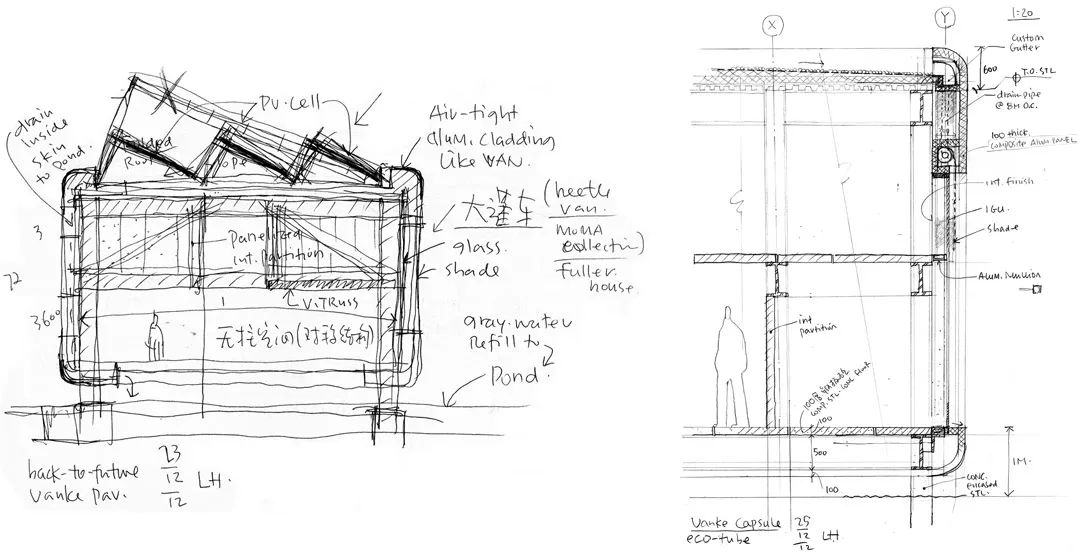 drain
inside
skin
to Pond.
PV. cell
Roof
Air-tight
Alum. cladding
Like VAN.
大篷车
(beetle
van.
MoMA
collection)
Fuller
house.
glass.
shade
3
Panelized
int. partition
V. TRUSS
72
3600
1
无柱空间(对称结构)
gray water
refill to
Pond.
back-to-future
Vanke pav.
23
12
12
LH.
X
Y
1:20
Custom
Gutter
600
T.O. STL
drain pipe
@ 8M O.C.
100 thick.
composite Alum PANEL
int. finish
IGU.
shade
Alum. Mullion
int
partition
100
comp. STL. conc
100
500
100
1M.
CONC.
Encased
STL.
Vanke Capsule
eco-tube
25
12
12
LH.